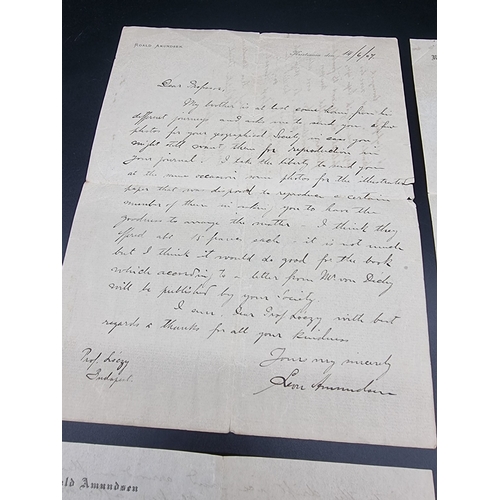 ROALD AMUNDSEN
14/6/07
Dear Professor,
My brother is at last come home from his
different journeys and asks me to send you a few
photos for your geographical Society in case you
might still want them for reproduction in
your journal. I take the liberty to send you
at the same occasion some photos for the illustrated
paper that was disposed to reproduce a certain
number of them in asking you to have the
goodness to arrange the matter. I think they
offered all 15 francs each - it is not much
but I think it would do good for the book
which according to a letter from Mr von Déchy
will be published by your Society.
I am, Dear Prof Lóczy with best
regards & thanks for all your kindness
Your very sincerely
Leon Amundsen
Prof. Lóczy
Budapest.
ald Amundsen